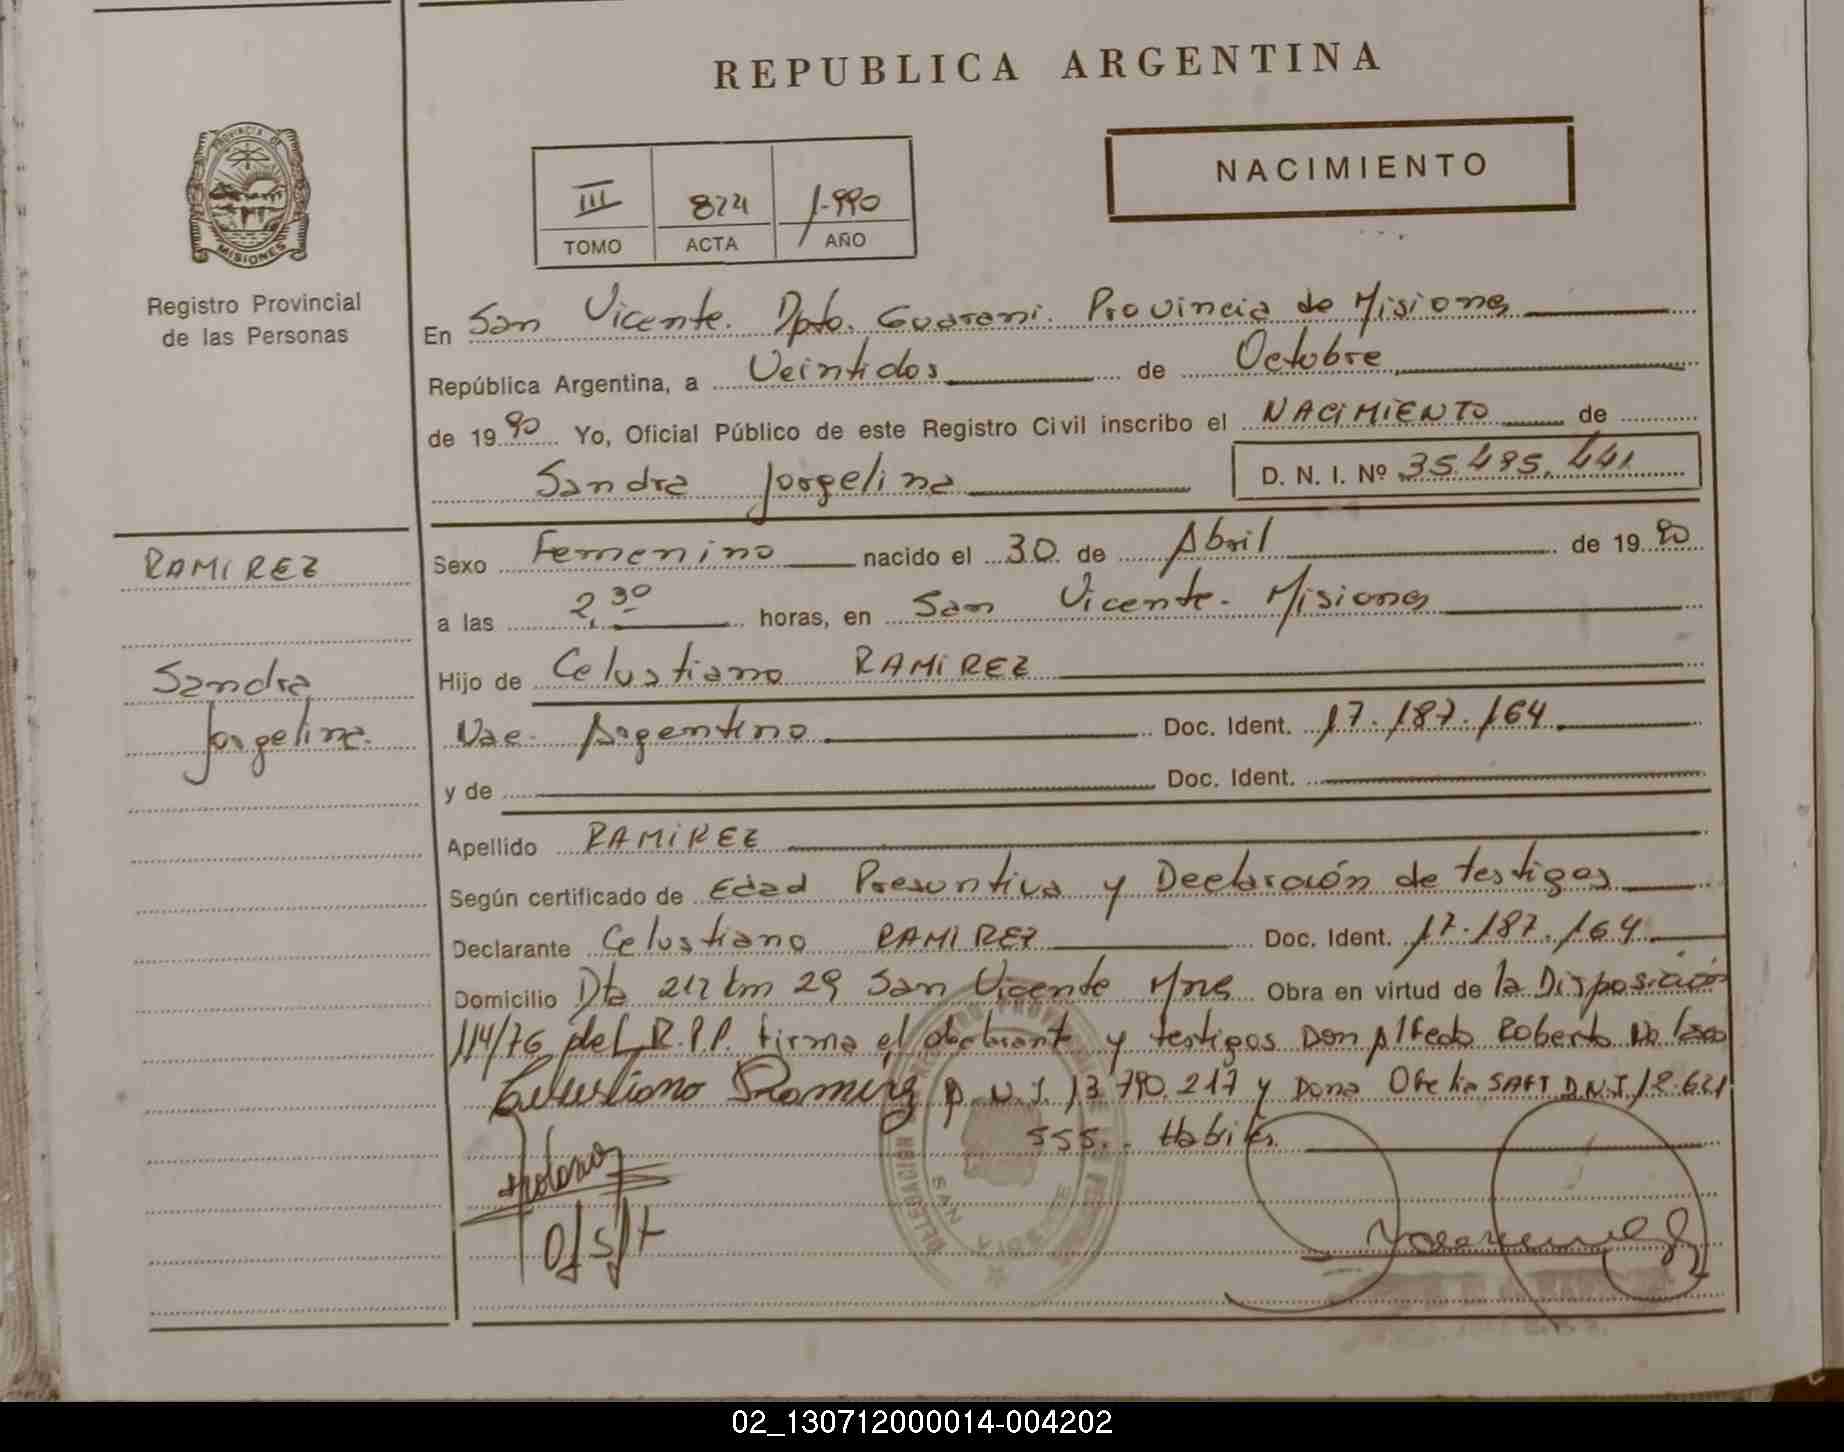 REPUBLICA ARGENTINA
NACIMIENTO
PROVINCIA DE
MISIONES
Registro Provincial
de las Personas
III 824 1-990
TOMO ACTA AÑO
En San Vicente. Dpto. Guarani. Provincia de Misiones
República Argentina, a Veintidos de Octubre
de 1990 Yo, Oficial Público de este Registro Civil inscribo el NACIMIENTO de
Sandra Jorgelina D. N. I. Nº 35.495.441
RAMIREZ
Sandra
Jorgelina.
Sexo Femenino nacido el 30 de Abril de 1990
a las 2,30 horas, en San Vicente. Misiones
Hijo de Celustiano RAMIREZ
Nac. Argentino Doc. Ident. 17.187.164
y de Doc. Ident.
Apellido RAMIREZ
Según certificado de Edad Presuntiva y Declaración de testigos
Declarante Celustiano RAMIREZ Doc. Ident. 17.187.164
Domicilio Dta 212 km 29 San Vicente Mnes Obra en virtud de la Disposición
114/76 del R.P.P. firma el declarante y testigos Don Alfredo Roberto
Celustiano Ramirez D.N.I. 13.790.217 y Dona Ofelia SAFT D.N.I 12.621
555.. Habiles.
DELEGACION
SAN VICENTE
02_130712000014-004202